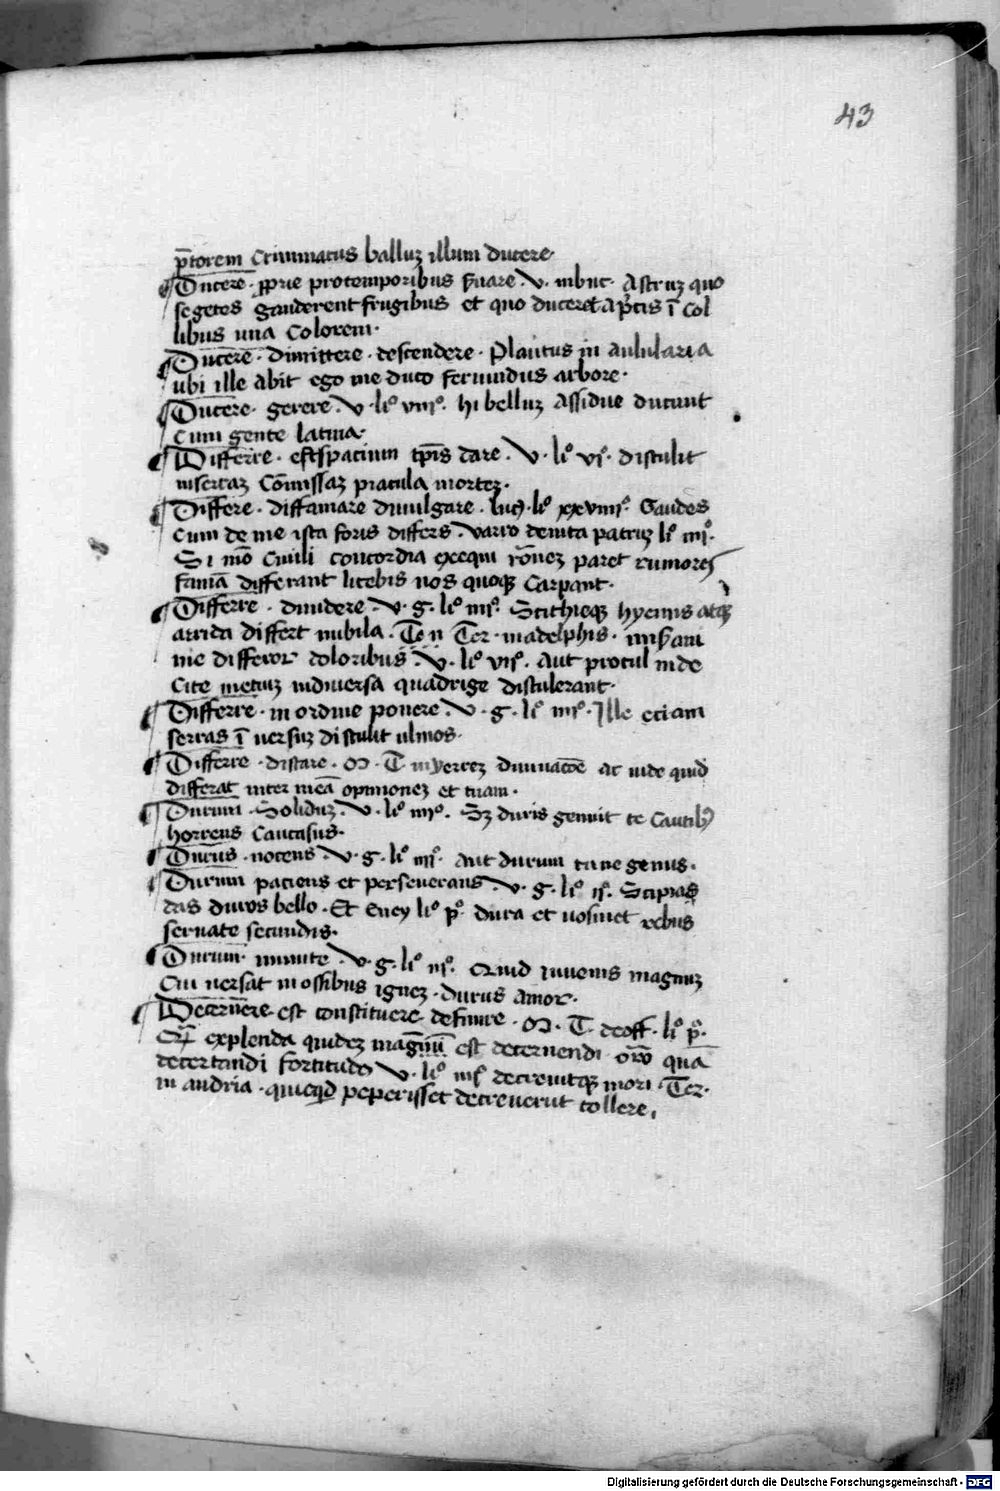 43
p̄torem Criminatus balluꝫ illum ducere·
Ducere · ꝓprie pro temporibus ẜuare · v · in buc · Astruꝫ quo
segetes gauderent frugibus et quo duceret Ap̄cis ī Col
libus uua Colorem·
Ducere · dimittere · descendere · Plautus in aulularia
ubi ille abit ego me duco ferundus arbore ·
Ducere · gerere · v · li° viii° · hi belluꝫ Assidue ducunt
Cum gente latina ·
Differre · est spacium tp̄is dare · v · li° vi° · distulit
inseraꝫ Cōmissaꝫ piacula morteꝫ ·
Differe · diffamare diuulgare · luc͛ · li° xxviiii° · Gaudes
Cum de me ista foris differs · varro de uita patruꝫ li° iii° ·
Si mō Ciuili concordia exequi rōneꝫ paret rumores
famā differant licebis nos quoqꝫ Carpant ·
Differre · diuidere · v · g · li° iii° · Scithieqꝫ hyemis atqꝫ
arrida differt nubila · Ter · in adelphis · miseram
me differor doloribus · v · li° viii° · Aut procul inde
Cite metuꝫ in diuersa quadrige distulerant ·
Differre · in ordine ponere · v · g · li° iiii° · Ille eciam
serras ī uersuꝫ distulit ulmos ·
Differre · distare · M · T in yerreꝫ diuinacōe ac uide quid
differat inter meā opinioneꝫ et tuam ·
Durum · Soliduꝫ · v · li° iiii° · Sꝫ duris genuit te Cautibꝰ
horrens Caucasus ·
Durus · nocens · v · g · li° iii° · aut durum cane genus ·
Durum paciens et perseuerans · v · g · li° ii° · Scipias
das duros bello · Et Eney li° p° · dura et uosmet rebus
seruate secundis ·
Durum · inmite · v · g · li° iii° · Quid iuuenis magnuꝫ
Cui uersat in ossibus igneꝫ · durus amor ·
Decernere · est constituere definire · M · T · de off · li° p° ·
explenda quideꝫ est decernendi rō quā
decertandi fortitudo v · li° iiii° decreuitqꝫ mori · Ter ·
in andria · quicqd peperisset decreuerut tollere ·
Digitalisierung gefördert durch die Deutsche Forschungsgemeinschaft - DFG